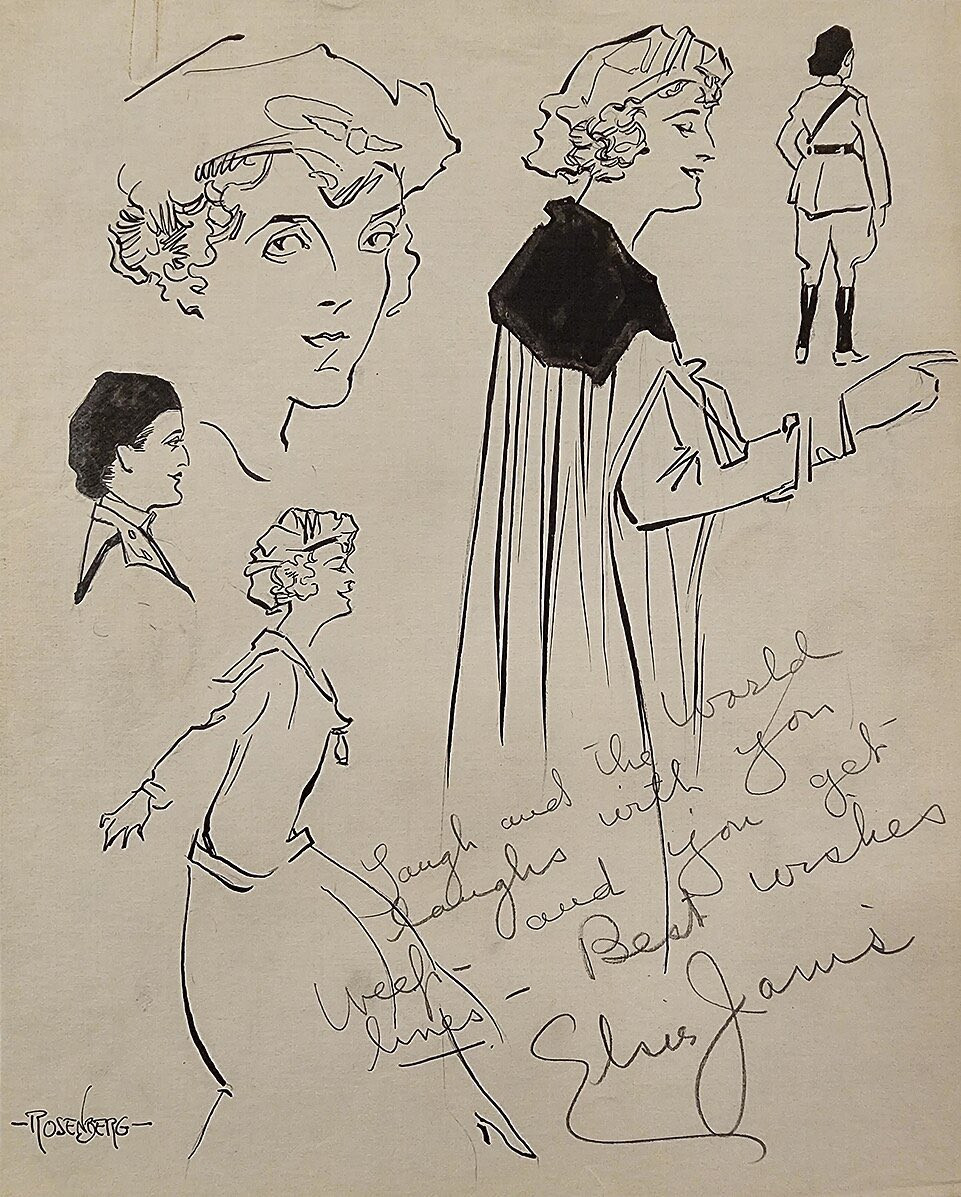 Laugh and the World
laughs with you
Weep - and you get
lines - Best wishes
Elsie Janis
-ROSENBERG-